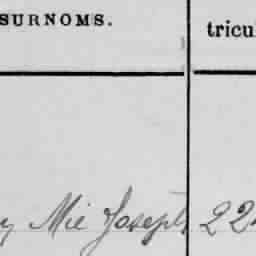 SURNOMS.
tricu
y Mie Joseph 22